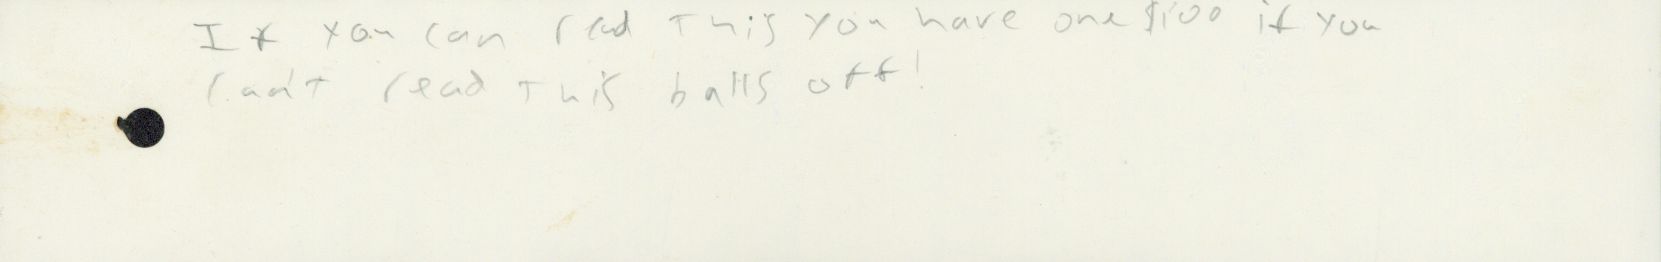 If you can read this you have one $100 if you
can't read this balls off!